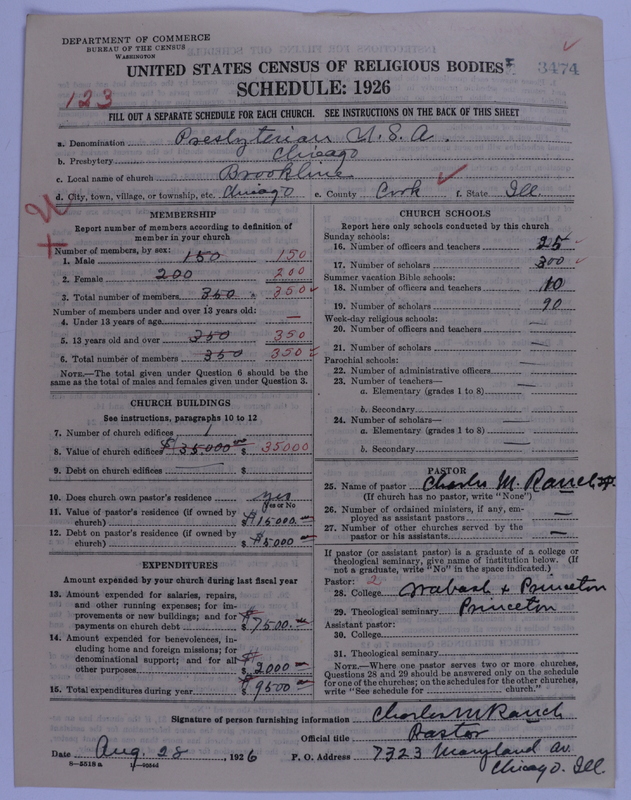 DEPARTMENT OF COMMERCE
BUREAU OF THE CENSUS
WASHINGTON
UNITED STATES CENSUS OF RELIGIOUS BODIES
3474
SCHEDULE: 1926
123
FILL OUT A SEPARATE SCHEDULE FOR EACH CHURCH. SEE INSTRUCTIONS ON THE BACK OF THIS SHEET
a. Denomination Presbyterian U.S.A.
b. Presbytery Chicago
c. Local name of church Brookline
d. City, town, village, or township, etc. Chicago e. County Cook f. State Ill
MEMBERSHIP
Report number of members according to definition of
member in your church
Number of members, by sex:
1. Male 150 150
2. Female 200 200
3. Total number of members 350 350
Number of members under and over 13 years old:
4. Under 13 years of age —
5. 13 years old and over 350 350
6. Total number of members 350 350
NOTE.—The total given under Question 6 should be
same as the total of males and females given under Question 3.
CHURCH BUILDINGS
See instructions, paragraphs 10 to 12
7. Number of church edifices 1
8. Value of church edifices $35000 00 $ 35000
9. Debt on church edifices — $
10. Does church own pastor's residence yes
(Yes or No)
11. Value of pastor's residence (if owned by
church) $ 15000.00
12. Debt on pastor's residence (if owned by
church) $ 5000 00
EXPENDITURES
Amount expended by your church during last fiscal year
13. Amount expended for salaries, repairs,
and other running expenses; for im-
provements or new buildings; and for
payments on church debt $ 7500.00
14. Amount expended for benevolences, in-
cluding home and foreign missions; for
denominational support; and for all
other purposes $ 2000 00
15. Total expenditures during year $ 9500 00
CHURCH SCHOOLS
Report here only schools conducted by this church
Sunday schools:
16. Number of officers and teachers 25
17. Number of scholars 300
Summer vacation Bible schools:
18. Number of officers and teachers 10
19. Number of scholars 90
Week-day religious schools:
20. Number of officers and teachers —
21. Number of scholars —
Parochial schools:
22. Number of administrative officers —
23. Number of teachers—
a. Elementary (grades 1 to 8) —
b. Secondary —
24. Number of scholars—
a. Elementary (grades 1 to 8) —
b. Secondary —
PASTOR
25. Name of pastor Charles M. Rauch
(If church has no pastor, write "None")
26. Number of ordained ministers, if any, em-
ployed as assistant pastors —
27. Number of other churches served by the
pastor or his assistants —
If pastor (or assistant pastor) is a graduate of a college or
theological seminary, give name of institution below. (If
not a graduate, write "No" in the space indicated.)
Pastor: 2
28. College Wabash & Princeton
29. Theological seminary Princeton
Assistant pastor:
30. College
31. Theological seminary
NOTE.—Where one pastor serves two or more churches,
Questions 28 and 29 should be answered only on the schedule
for one of the churches; on the schedules for the other churches,
write "See schedule for church."
Signature of person furnishing information Charles M Rauch
Official title Pastor
Date Aug. 28, 1926 P. O. Address 7323 Maryland Av.
Chicago. Ill.
8—5518 a